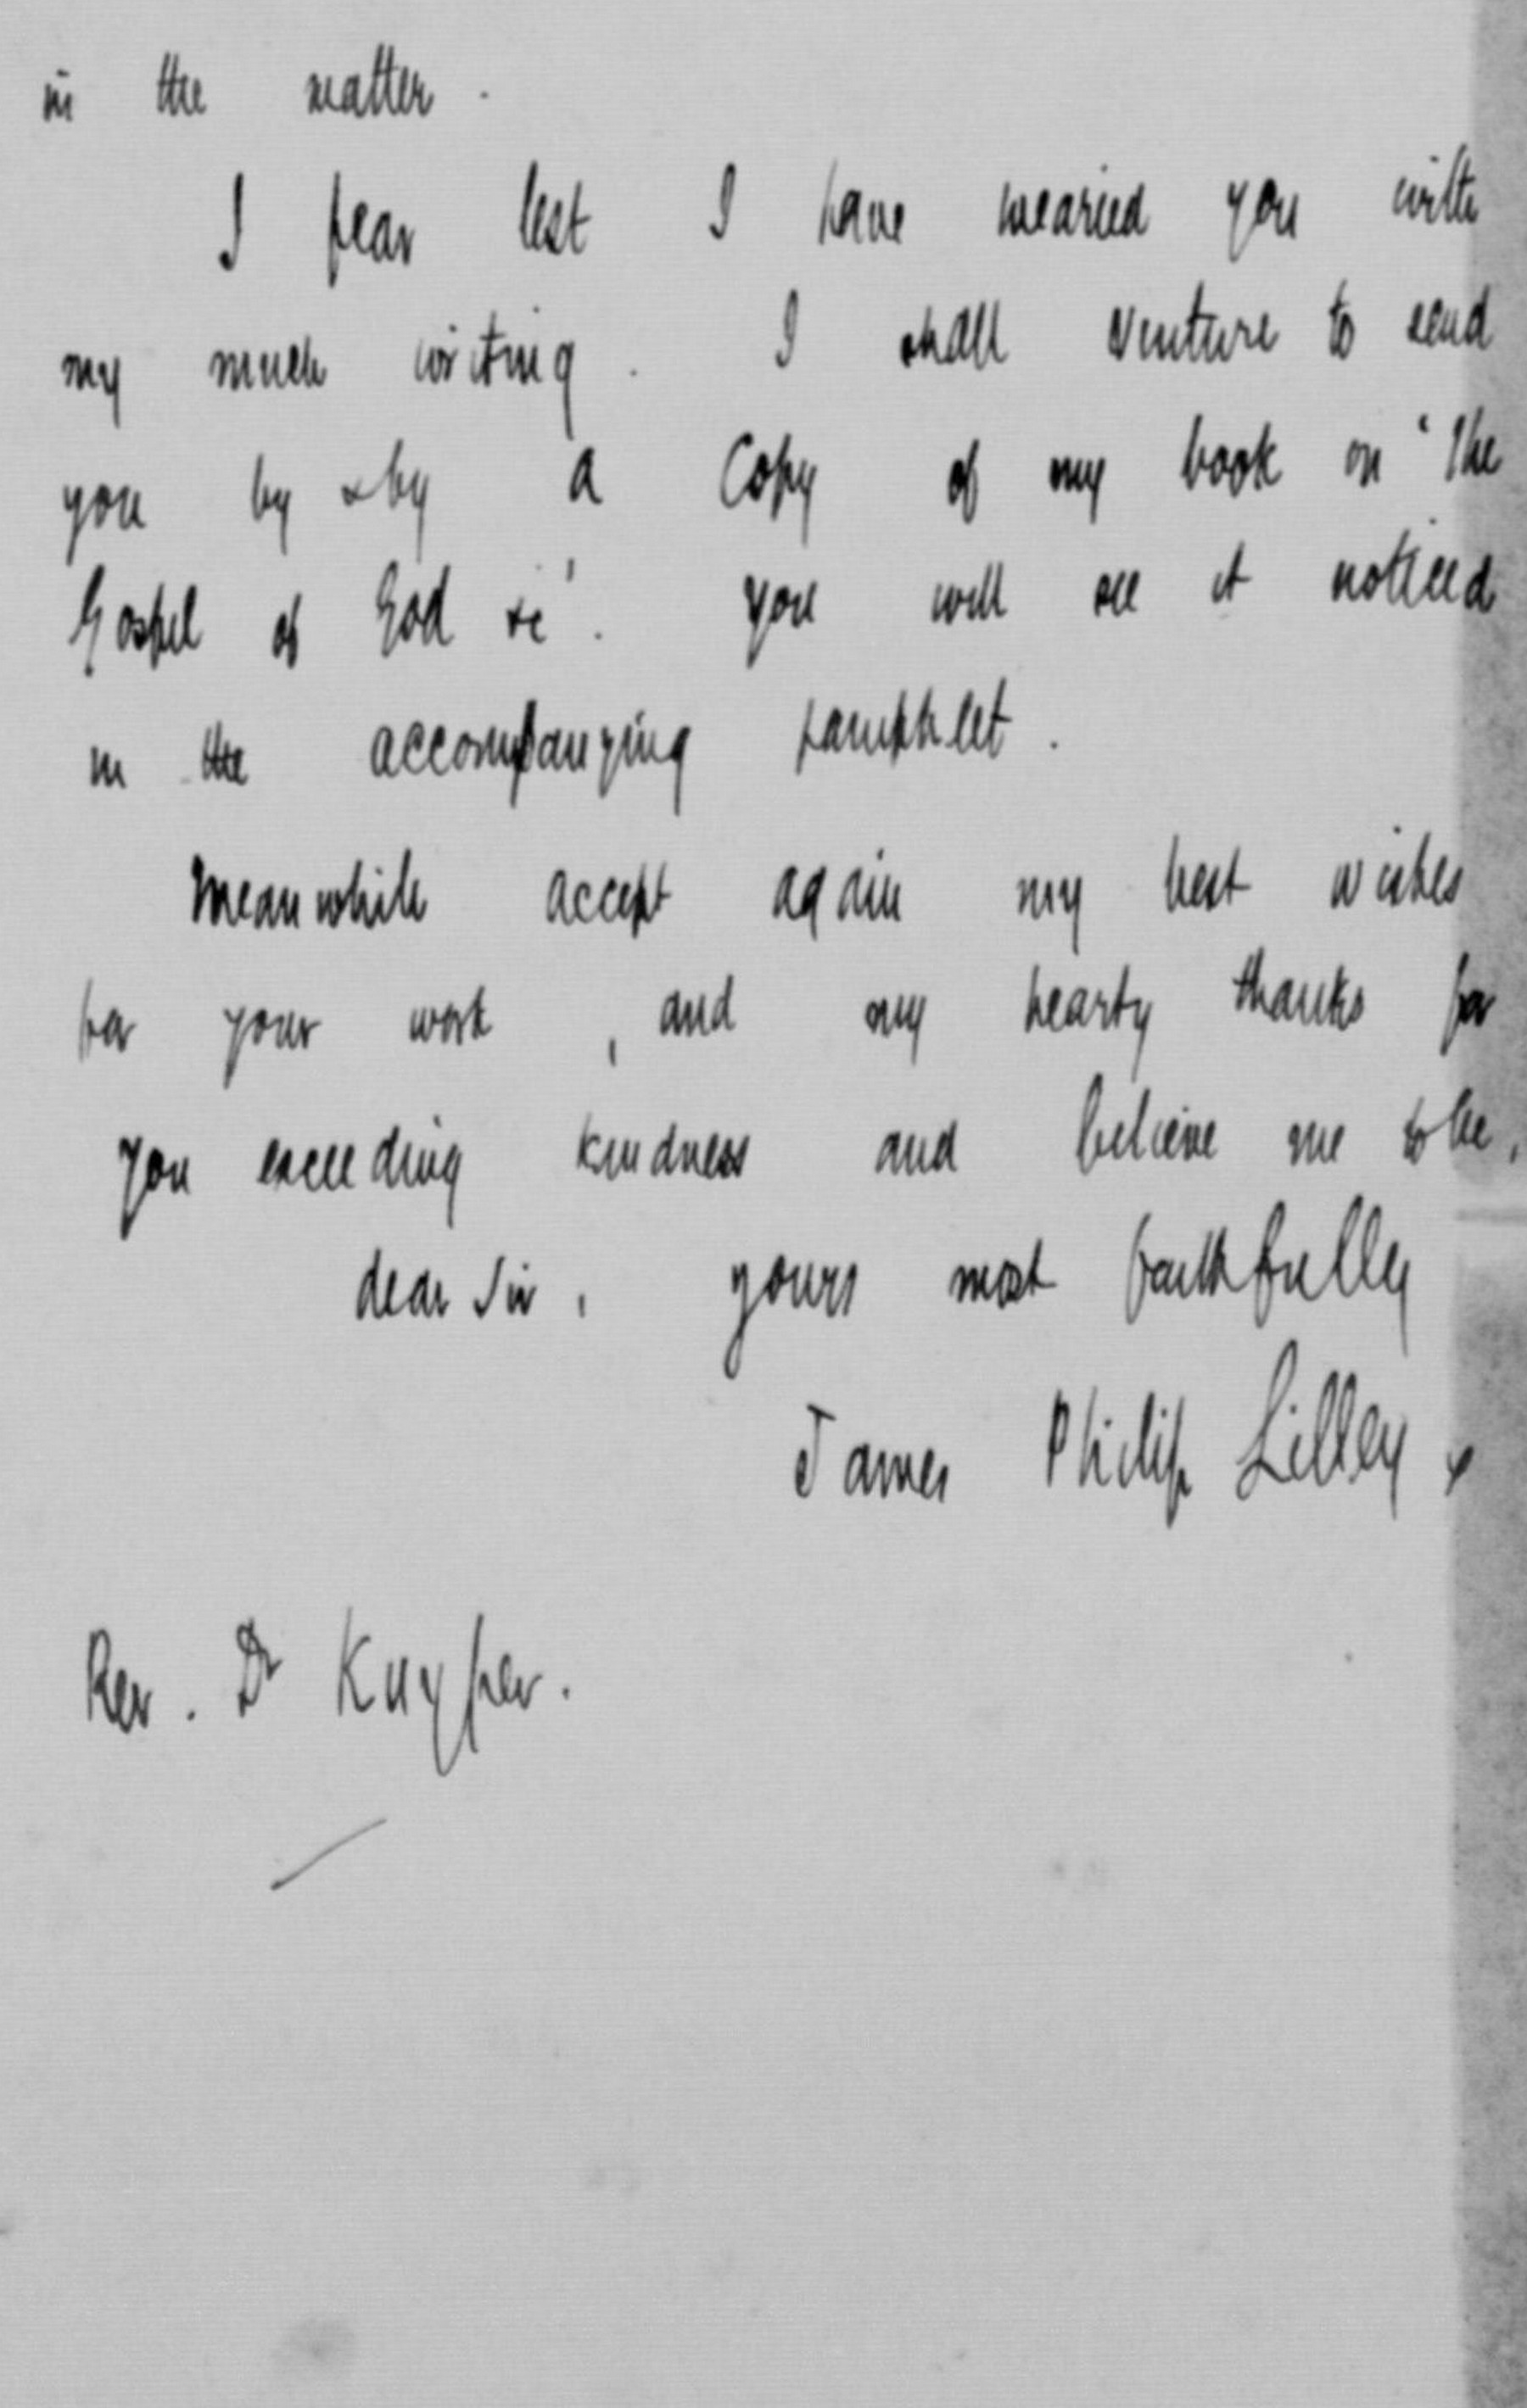 in the matter.
I fear lest I have wearied you with
my much writing. I shall venture to send
you by & by a Copy of my book on 'The
Gospel of God &c'. You will see it noticed
in the accompanying pamphlet.
Meanwhile accept again my best wishes
for your work, and my hearty thanks for
you exceeding kindness and believe me to be,
dear Sir, yours most faithfully
James Philip Lilley
Rev. Dr Kuyper.